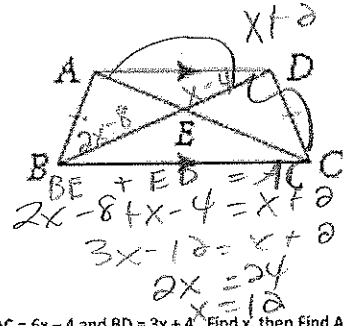 x+2
A D
x-4
2x-8
E
B C
BE + ED = AC
2x-8+x-4=x+2
3x-12=x+2
2x=24
x=12
AC = 6x – 4 and BD = 3x + 4. Find x, then Find A